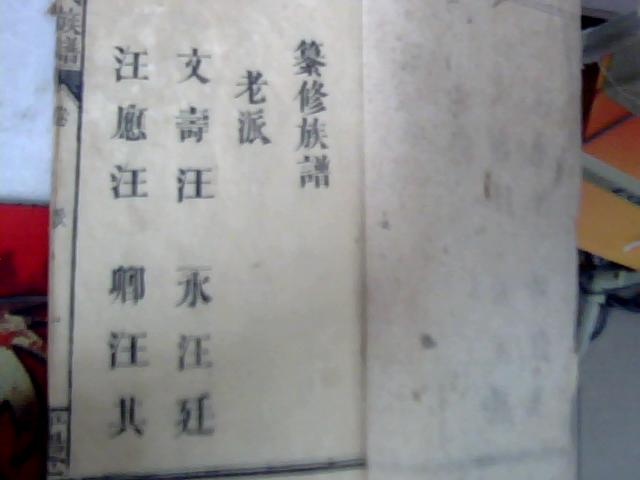 纂修族譜
老派
文壽汪 永汪廷
汪應汪 卿汪其
族譜
卷